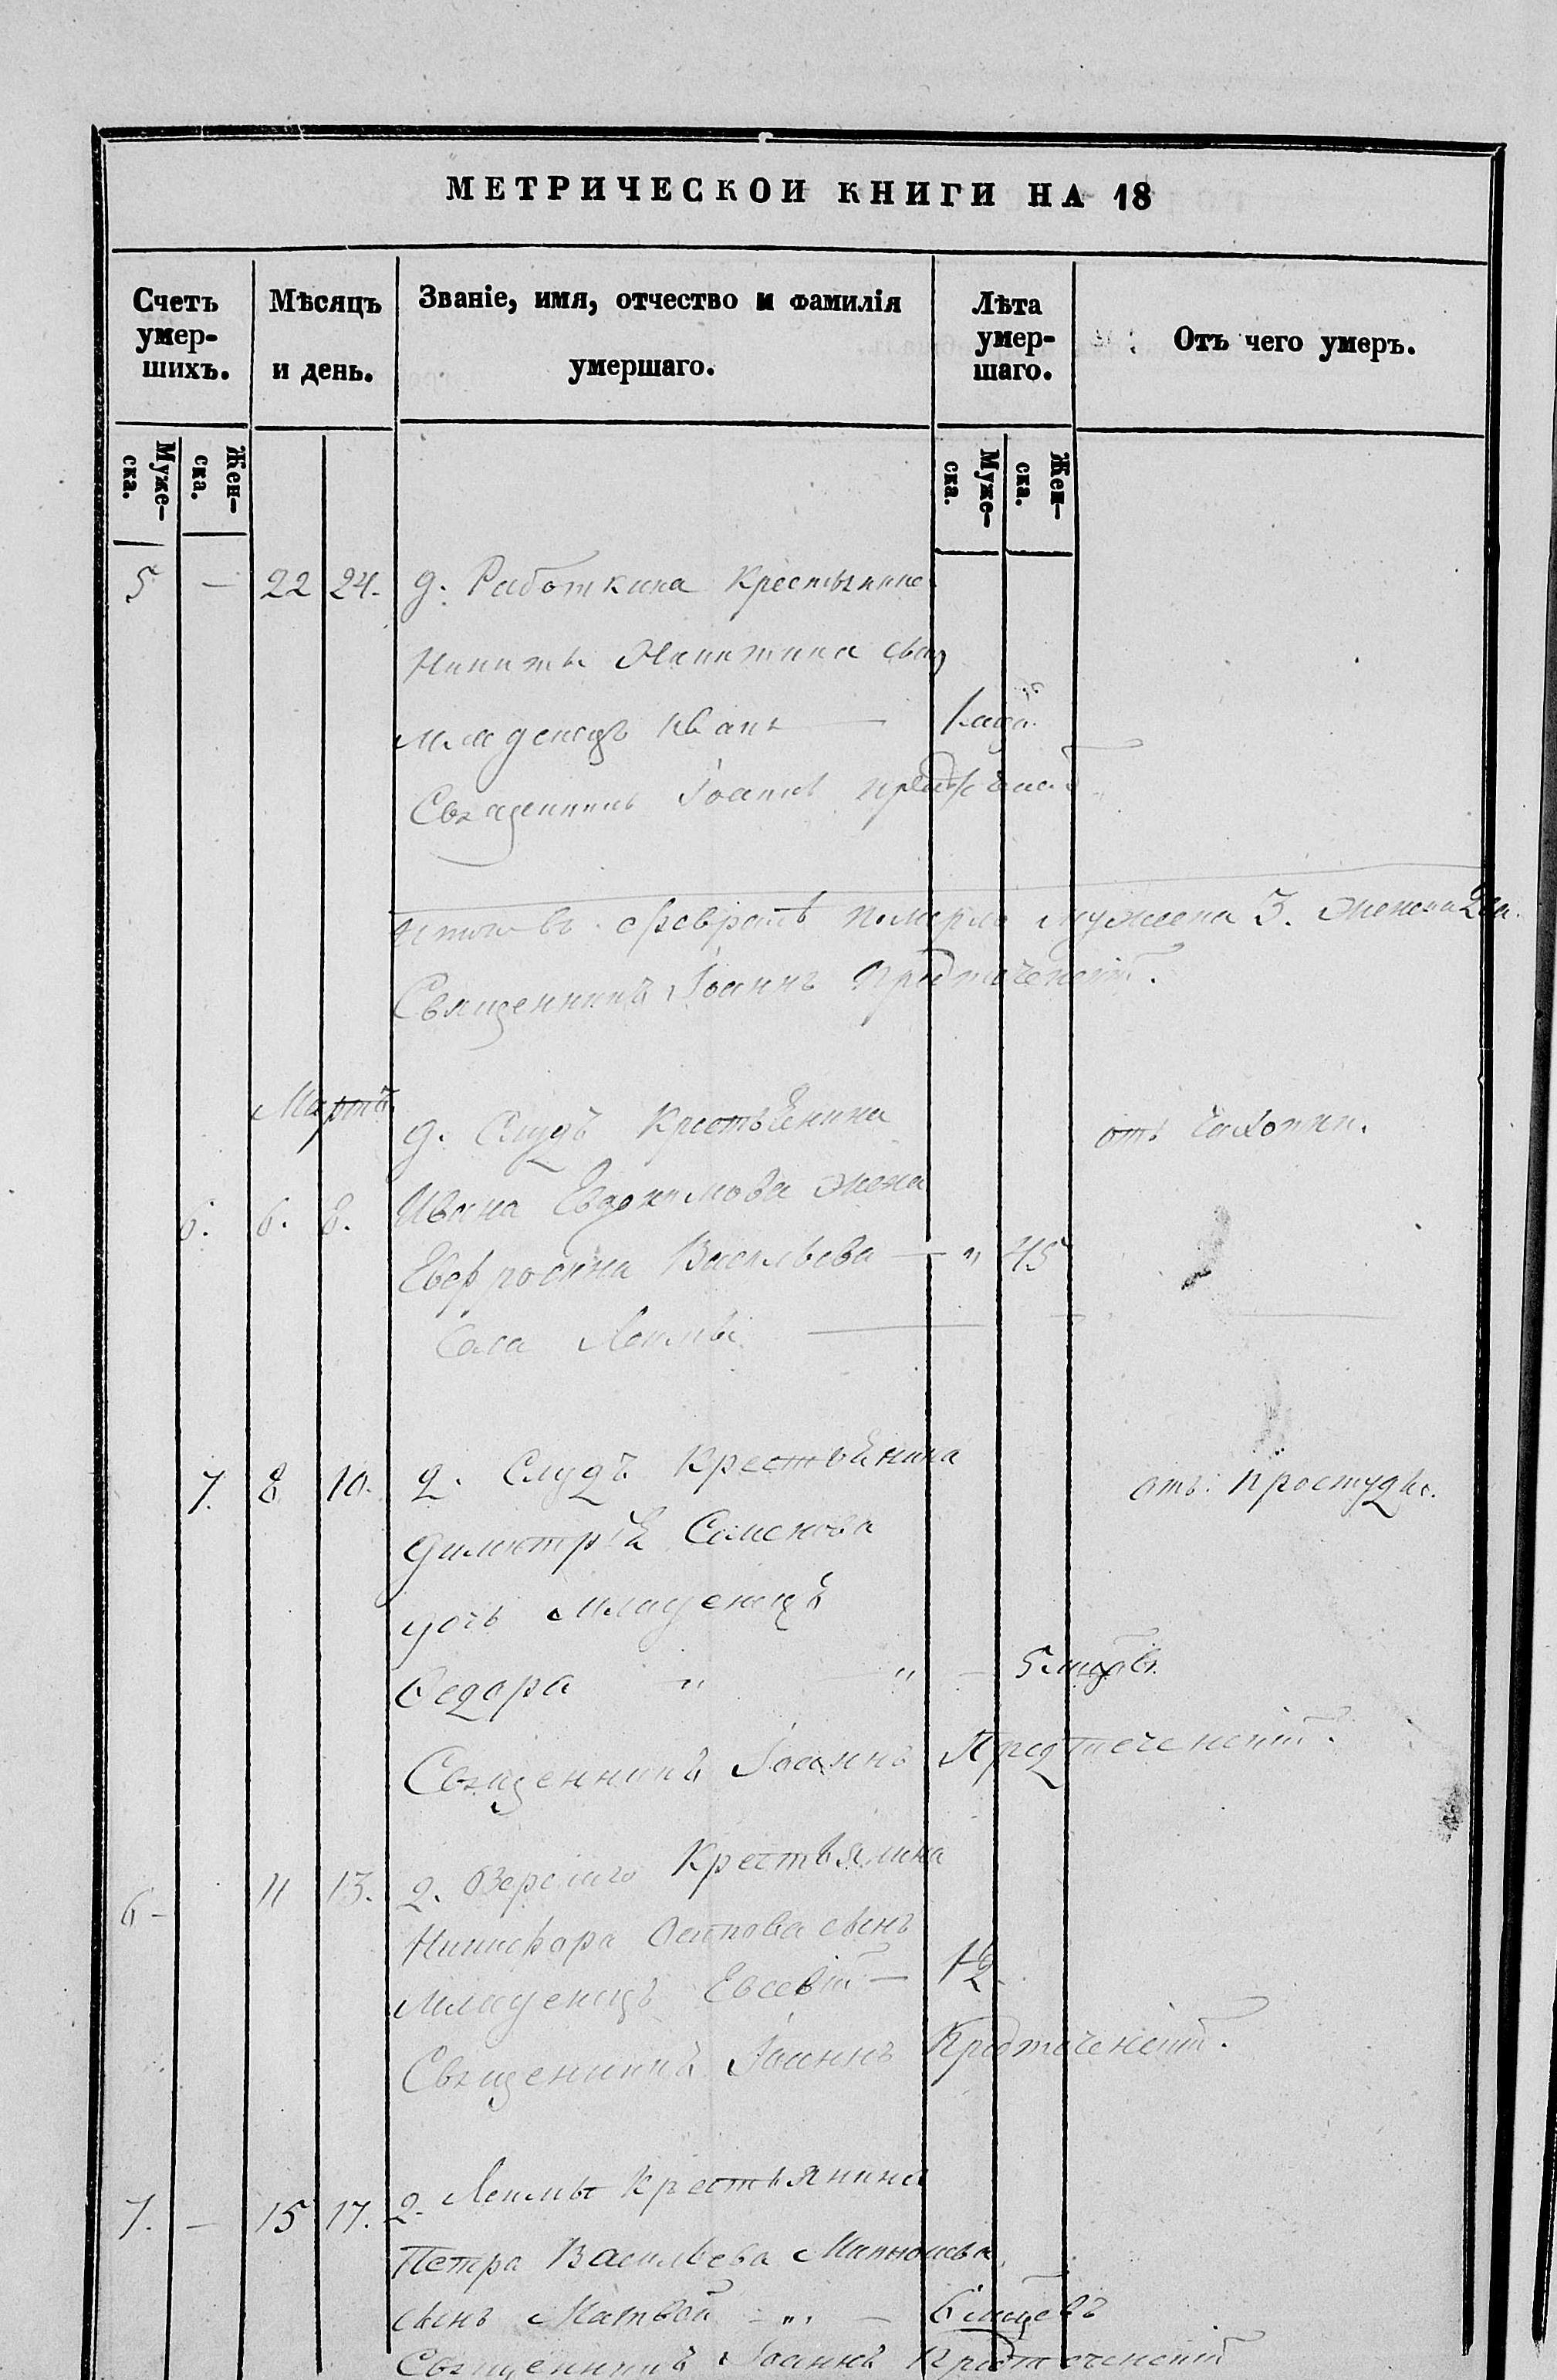 МЕТРИЧЕСКОЙ КНИГИ НА 18
Счетъ умер-шихъ.
Мѣсяцъ и день.
Званіе, имя, отчество и фамилія умершаго.
Лѣта умер-шаго.
Отъ чего умеръ.
Муже-ска.
Жен-ска.
Муже-ска.
Жен-ска.
5 — 22 24. д. Работкина Крестьянина
Никиты Никитина сынъ
младенецъ Иванъ —
Священникъ Іоаннъ Предтеченскій
Итого въ февралѣ померло мужеска 3. женска 2
Священникъ Іоаннъ Предтеченскій.
Мартъ
д. Слудъ Крестьянина отъ чахотки.
6. 6. 8. Ивана Евдокимова жена
Евфросина Васильева — „ 45
Села Лекмы
7. 8 10. д. Слудъ Крестьянина отъ простуды.
Димитрія Семенова
дочь младенецъ
Ѳедора „ „ — 5
Священникъ Іоаннъ Предтеченскій.
6 — 11 13. д. Крестьянина
Никифора Осипова сынъ
Младенецъ Евсевій —
Священникъ Іоаннъ Предтеченскій.
7. — 15 17. д. Лекмы Крестьянина
Петра Васильева
сынъ Матвѣй — „ — 6 мцевъ
Священникъ Іоаннъ Предтеченскій